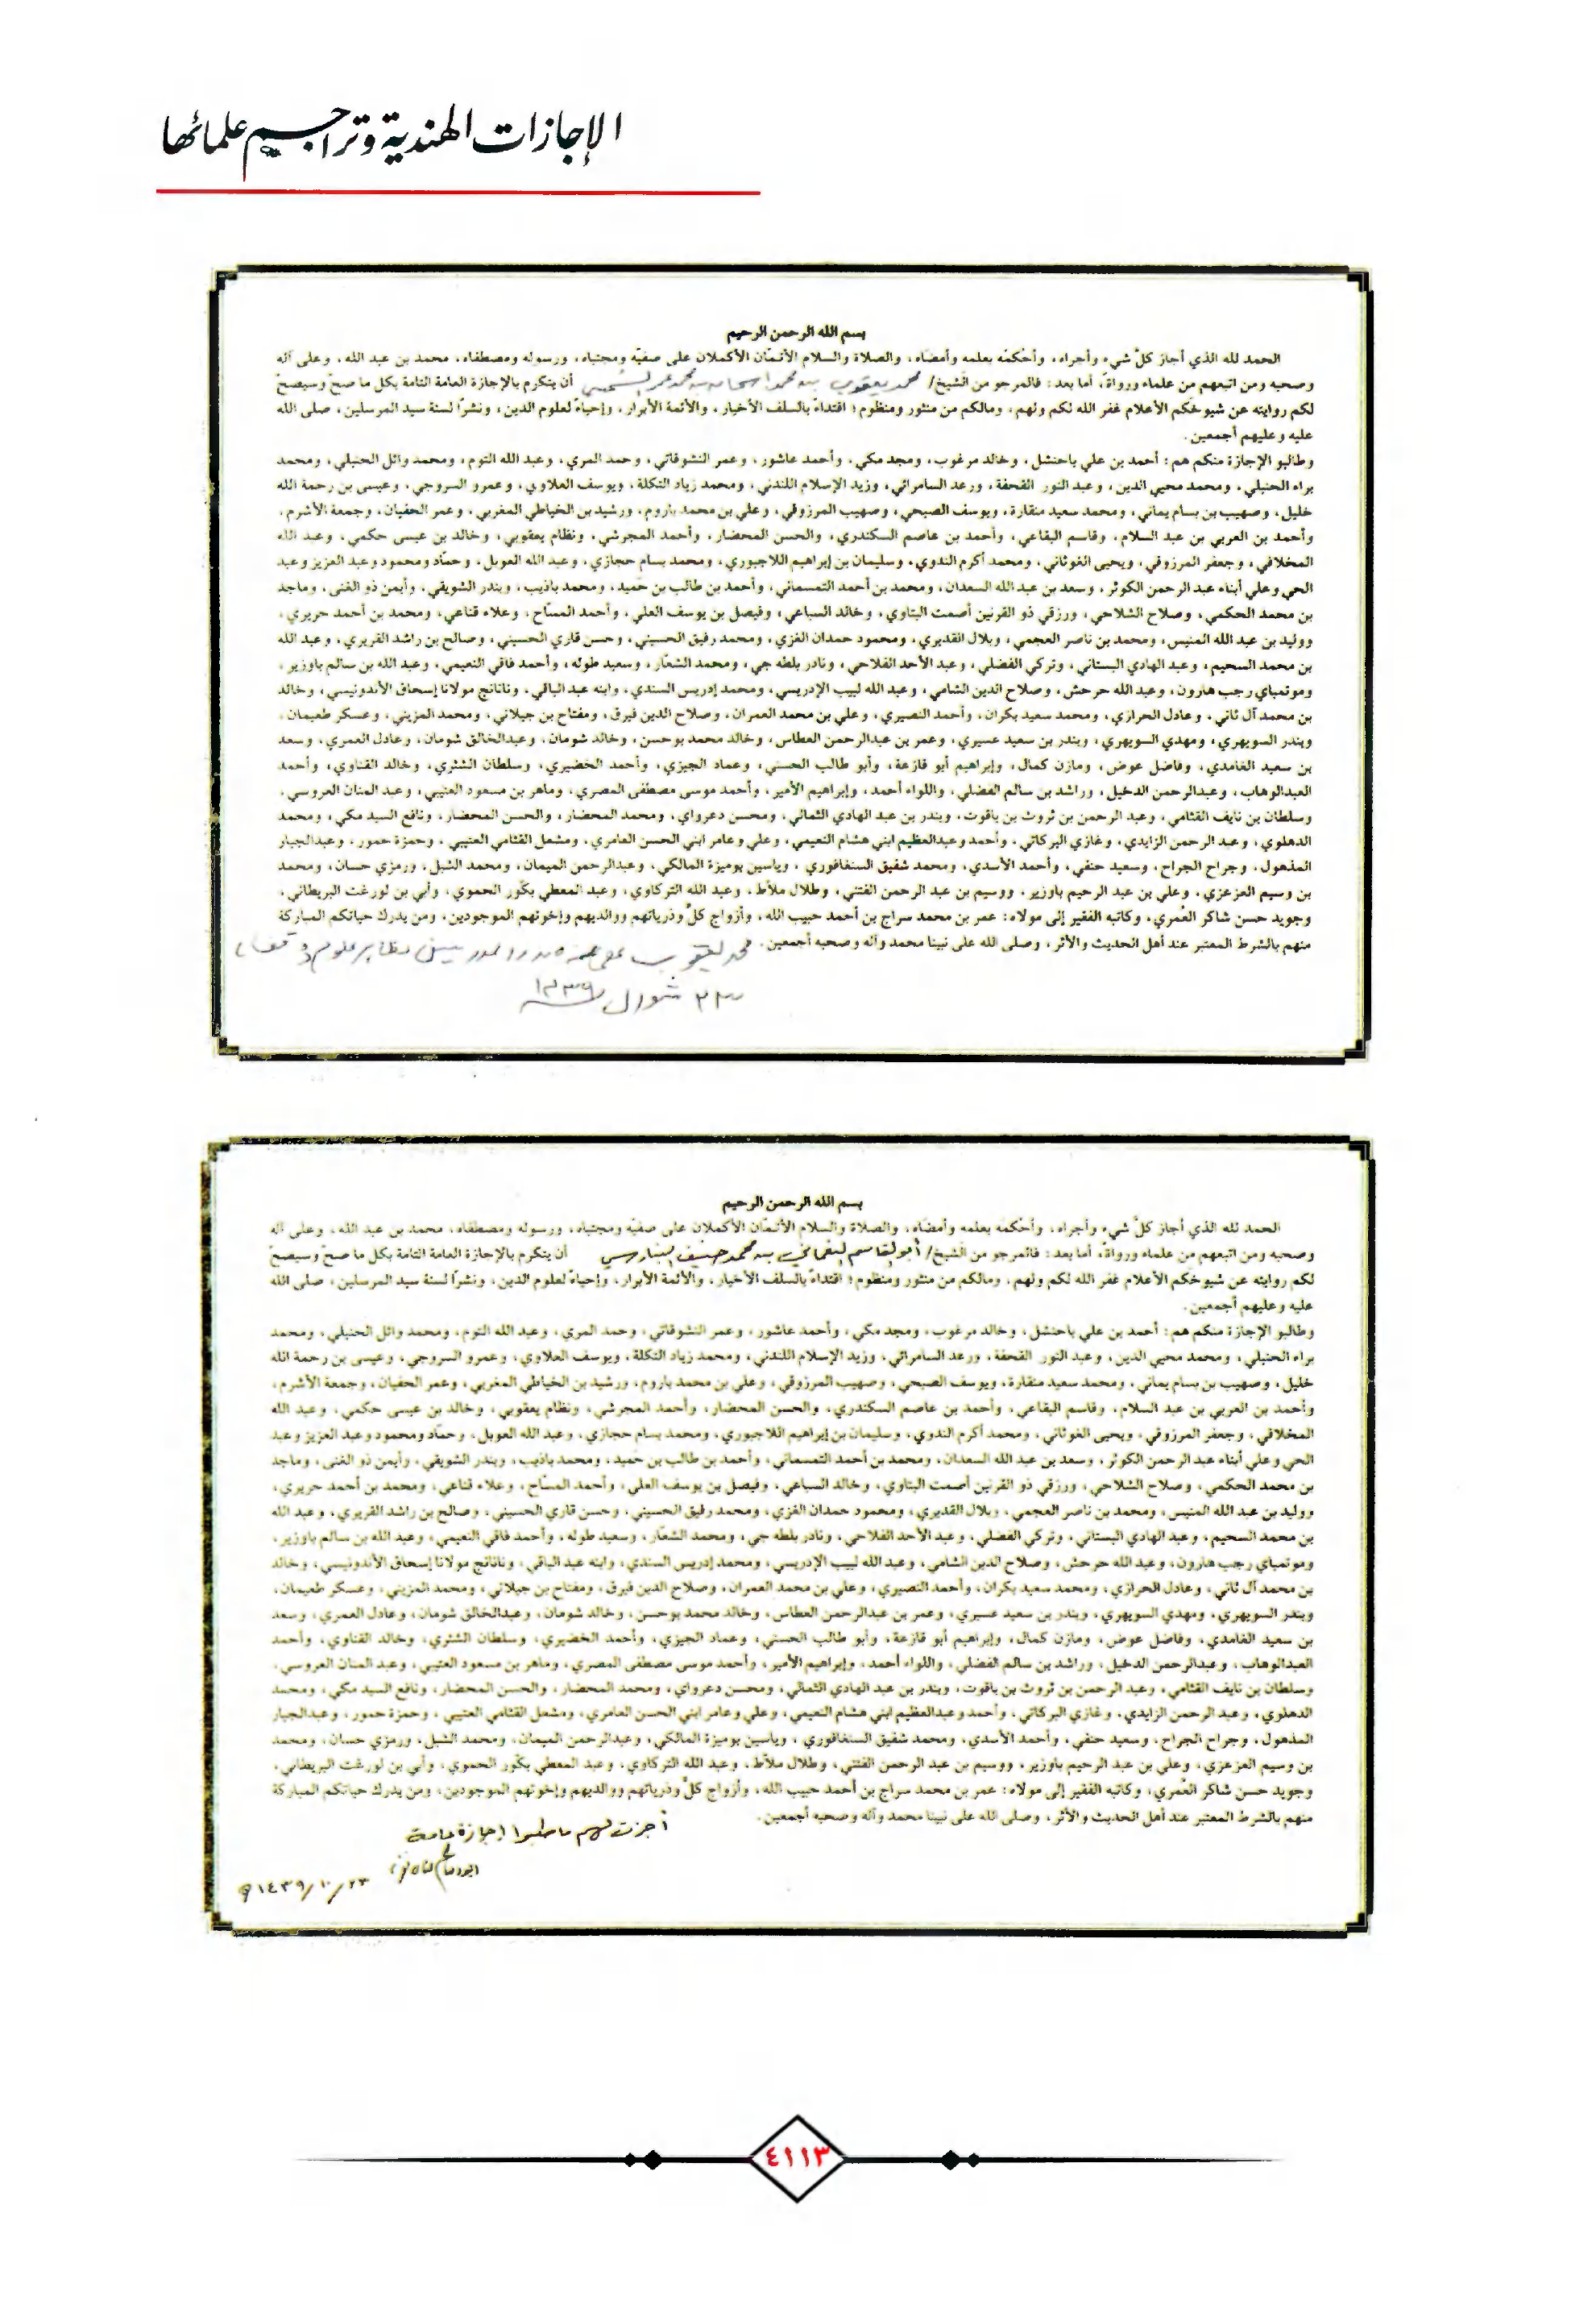 الإجازات الهندية وتراجيم علمائها
بسم الله الرحمن الرحيم
الحمد لله الذي أجاز كلَّ شيء وأجراه، وأحْكمَه بعلمه وأمضاه، والصلاة والسلام الأتمّان الأكملان على صفيّه ومجتباه، ورسوله ومصطفاه، محمد بن عبد الله، وعلى آله
وصحبه ومن اتبعهم من علماء ورواة، أما بعد: فالمرجو من الشيخ/ محمد يعقوب بن محمد إسحاق بن محمد عمر أن يتكرم بالإجازة العامة التامة بكل ما صحّ وسيصحّ
لكم روايته عن شيوخكم الأعلام غفر الله لكم ولهم، ومالكم من منثور ومنظوم؛ اقتداءً بالسلف الأخيار، والأئمة الأبرار، وإحياءً لعلوم الدين، ونشرًا لسنة سيد المرسلين، صلى الله
عليه وعليهم أجمعين.
وطالبو الإجازة منكم هم: أحمد بن علي باحنشل، وخالد مرغوب، ومجد مكي، وأحمد عاشور، وعمر النشوقاتي، وحمد المري، وعبد الله التوم، ومحمد وائل الحنبلي، ومحمد
براء الحنبلي، ومحمد محيي الدين، وعبد النور القحفة، ورعد السامرائي، وزيد الإسلام اللندني، ومحمد زياد التكلة، ويوسف العلاوي، وعمرو السروجي، وعيسى بن رحمة الله
خليل، وصهيب بن بسام يماني، ومحمد سعيد منقارة، ويوسف الصبحي، وصهيب المرزوقي، وعلي بن محمد باروم، ورشيد بن الخياطي المغربي، وعمر الحفيان، وجمعة الأشرم،
وأحمد بن العربي بن عبد السلام، وقاسم البقاعي، وأحمد بن عاصم السكندري، والحسن المحضار، وأحمد المجرشي، ونظام يعقوبي، وخالد بن عيسى حكمي، وعبد الله
المخلافي، وجعفر المرزوقي، ويحيى الغوثاني، ومحمد أكرم الندوي، وسليمان بن إبراهيم اللاجبوري، ومحمد بسام حجازي، وعبد الله العوبل، وحمّاد ومحمود وعبد العزيز وعبد
الحي وعلي أبناء عبد الرحمن الكوثر، وسعد بن عبد الله السعدان، ومحمد بن أحمد التمسماني، وأحمد بن طالب بن حَميد، ومحمد باذيب، وبندر الشويقي، وأيمن ذو الغنى، وماجد
بن محمد الحكمي، وصلاح الشلاحي، ورزقي ذو القرنين أصمت البتاوي، وخالد السباعي، وفيصل بن يوسف العلي، وأحمد المسّاح، وعلاء قناعي، ومحمد بن أحمد حريري،
ووليد بن عبد الله المنيس، ومحمد بن ناصر العجمي، وبلال القديري، ومحمود حمدان الغزي، ومحمد رفيق الحسيني، وحسن قاري الحسيني، وصالح بن راشد القريري، وعبد الله
بن محمد السحيم، وعبد الهادي البستاني، وتركي الفضلي، وعبد الأحد الفلاحي، ونادر بلطه جي، ومحمد الشعّار، وسعيد طوله، وأحمد فاقي النعيمي، وعبد الله بن سالم باوزير،
وموتمباي رجب هارون، وعبد الله حرحش، وصلاح الدين الشامي، وعبد الله لبيب الإدريسي، ومحمد إدريس السندي، وابنه عبد الباقي، ونانانج مولانا إسحاق الأندونيسي، وخالد
بن محمد آل ثاني، وعادل الحرازي، ومحمد سعيد بكران، وأحمد النصيري، وعلي بن محمد العمران، وصلاح الدين فيرق، ومفتاح بن جيلاني، ومحمد المزيني، وعسكر طعيمان،
وبندر السويهري، ومهدي السويهري، وبندر بن سعيد عسيري، وعمر بن عبدالرحمن العطاس، وخالد محمد بوحسن، وخالد شومان، وعبدالخالق شومان، وعادل العمري، وسعد
بن سعيد الغامدي، وفاضل عوض، ومازن كمال، وإبراهيم أبو قازعة، وأبو طالب الحسني، وعماد الجيزي، وأحمد الخضيري، وسلطان الشثري، وخالد القناوي، وأحمد
العبدالوهاب، وعبدالرحمن الدخيل، وراشد بن سالم الفضلي، واللواء أحمد، وإبراهيم الأمير، وأحمد موسى مصطفى المصري، وماهر بن مسعود العتيبي، وعبد المنان العروسي،
وسلطان بن نايف القثامي، وعبد الرحمن بن ثروث بن ياقوت، وبندر بن عبد الهادي الثمالي، ومحسن دعرواي، ومحمد المحضار، والحسن المحضار، ونافع السيد مكي، ومحمد
الدهلوي، وعبد الرحمن الزايدي، وغازي البركاتي، وأحمد وعبدالعظيم ابني هشام النعيمي، وعلي وعامر ابني الحسن العامري، ومشعل القثامي العتيبي، وحمزة حمور، وعبدالجبار
المذهول، وجراح الجراح، وسعيد حنفي، وأحمد الأسدي، ومحمد شفيق السنغافوري، وياسين بوميزة المالكي، وعبدالرحمن الميمان، ومحمد الشبل، ورمزي حسان، ومحمد
بن وسيم العزعزي، وعلي بن عبد الرحيم باوزير، ووسيم بن عبد الرحمن الفتني، وطلال ملاّط، وعبد الله التركاوي، وعبد المعطي بكّور الحموي، وأبي بن لورغت البريطاني،
وجويد حسن شاكر العُمري، وكاتبه الفقير إلى مولاه: عمر بن محمد سراج بن أحمد حبيب الله، وأزواج كلٍّ وذرياتهم ووالديهم وإخوتهم الموجودين، ومن يدرك حياتكم المباركة
منهم بالشرط المعتبر عند أهل الحديث والأثر، وصلى الله على نبينا محمد وآله وصحبه أجمعين.
محمد يعقوب عفي عنه صدر المدرسين مظاهر علوم وقف
٢٣ شوال ١٤٣٩
بسم الله الرحمن الرحيم
الحمد لله الذي أجاز كلَّ شيء وأجراه، وأحْكمَه بعلمه وأمضاه، والصلاة والسلام الأتمّان الأكملان على صفيّه ومجتباه، ورسوله ومصطفاه، محمد بن عبد الله، وعلى آله
وصحبه ومن اتبعهم من علماء ورواة، أما بعد: فالمرجو من الشيخ/ أبو القاسم النعماني بن محمد حنيف البنارسي أن يتكرم بالإجازة العامة التامة بكل ما صحّ وسيصحّ
لكم روايته عن شيوخكم الأعلام غفر الله لكم ولهم، ومالكم من منثور ومنظوم؛ اقتداءً بالسلف الأخيار، والأئمة الأبرار، وإحياءً لعلوم الدين، ونشرًا لسنة سيد المرسلين، صلى الله
عليه وعليهم أجمعين.
وطالبو الإجازة منكم هم: أحمد بن علي باحنشل، وخالد مرغوب، ومجد مكي، وأحمد عاشور، وعمر النشوقاتي، وحمد المري، وعبد الله التوم، ومحمد وائل الحنبلي، ومحمد
براء الحنبلي، ومحمد محيي الدين، وعبد النور القحفة، ورعد السامرائي، وزيد الإسلام اللندني، ومحمد زياد التكلة، ويوسف العلاوي، وعمرو السروجي، وعيسى بن رحمة الله
خليل، وصهيب بن بسام يماني، ومحمد سعيد منقارة، ويوسف الصبحي، وصهيب المرزوقي، وعلي بن محمد باروم، ورشيد بن الخياطي المغربي، وعمر الحفيان، وجمعة الأشرم،
وأحمد بن العربي بن عبد السلام، وقاسم البقاعي، وأحمد بن عاصم السكندري، والحسن المحضار، وأحمد المجرشي، ونظام يعقوبي، وخالد بن عيسى حكمي، وعبد الله
المخلافي، وجعفر المرزوقي، ويحيى الغوثاني، ومحمد أكرم الندوي، وسليمان بن إبراهيم اللاجبوري، ومحمد بسام حجازي، وعبد الله العوبل، وحمّاد ومحمود وعبد العزيز وعبد
الحي وعلي أبناء عبد الرحمن الكوثر، وسعد بن عبد الله السعدان، ومحمد بن أحمد التمسماني، وأحمد بن طالب بن حَميد، ومحمد باذيب، وبندر الشويقي، وأيمن ذو الغنى، وماجد
بن محمد الحكمي، وصلاح الشلاحي، ورزقي ذو القرنين أصمت البتاوي، وخالد السباعي، وفيصل بن يوسف العلي، وأحمد المسّاح، وعلاء قناعي، ومحمد بن أحمد حريري،
ووليد بن عبد الله المنيس، ومحمد بن ناصر العجمي، وبلال القديري، ومحمود حمدان الغزي، ومحمد رفيق الحسيني، وحسن قاري الحسيني، وصالح بن راشد القريري، وعبد الله
بن محمد السحيم، وعبد الهادي البستاني، وتركي الفضلي، وعبد الأحد الفلاحي، ونادر بلطه جي، ومحمد الشعّار، وسعيد طوله، وأحمد فاقي النعيمي، وعبد الله بن سالم باوزير،
وموتمباي رجب هارون، وعبد الله حرحش، وصلاح الدين الشامي، وعبد الله لبيب الإدريسي، ومحمد إدريس السندي، وابنه عبد الباقي، ونانانج مولانا إسحاق الأندونيسي، وخالد
بن محمد آل ثاني، وعادل الحرازي، ومحمد سعيد بكران، وأحمد النصيري، وعلي بن محمد العمران، وصلاح الدين فيرق، ومفتاح بن جيلاني، ومحمد المزيني، وعسكر طعيمان،
وبندر السويهري، ومهدي السويهري، وبندر بن سعيد عسيري، وعمر بن عبدالرحمن العطاس، وخالد محمد بوحسن، وخالد شومان، وعبدالخالق شومان، وعادل العمري، وسعد
بن سعيد الغامدي، وفاضل عوض، ومازن كمال، وإبراهيم أبو قازعة، وأبو طالب الحسني، وعماد الجيزي، وأحمد الخضيري، وسلطان الشثري، وخالد القناوي، وأحمد
العبدالوهاب، وعبدالرحمن الدخيل، وراشد بن سالم الفضلي، واللواء أحمد، وإبراهيم الأمير، وأحمد موسى مصطفى المصري، وماهر بن مسعود العتيبي، وعبد المنان العروسي،
وسلطان بن نايف القثامي، وعبد الرحمن بن ثروث بن ياقوت، وبندر بن عبد الهادي الثمالي، ومحسن دعرواي، ومحمد المحضار، والحسن المحضار، ونافع السيد مكي، ومحمد
الدهلوي، وعبد الرحمن الزايدي، وغازي البركاتي، وأحمد وعبدالعظيم ابني هشام النعيمي، وعلي وعامر ابني الحسن العامري، ومشعل القثامي العتيبي، وحمزة حمور، وعبدالجبار
المذهول، وجراح الجراح، وسعيد حنفي، وأحمد الأسدي، ومحمد شفيق السنغافوري، وياسين بوميزة المالكي، وعبدالرحمن الميمان، ومحمد الشبل، ورمزي حسان، ومحمد
بن وسيم العزعزي، وعلي بن عبد الرحيم باوزير، ووسيم بن عبد الرحمن الفتني، وطلال ملاّط، وعبد الله التركاوي، وعبد المعطي بكّور الحموي، وأبي بن لورغت البريطاني،
وجويد حسن شاكر العُمري، وكاتبه الفقير إلى مولاه: عمر بن محمد سراج بن أحمد حبيب الله، وأزواج كلٍّ وذرياتهم ووالديهم وإخوتهم الموجودين، ومن يدرك حياتكم المباركة
منهم بالشرط المعتبر عند أهل الحديث والأثر، وصلى الله على نبينا محمد وآله وصحبه أجمعين.
أجزت لهم ما طلبوا إجازة عامة
ابو القاسم نعمانی
٢٣/١٠/١٤٣٩ھ
٤١١٣